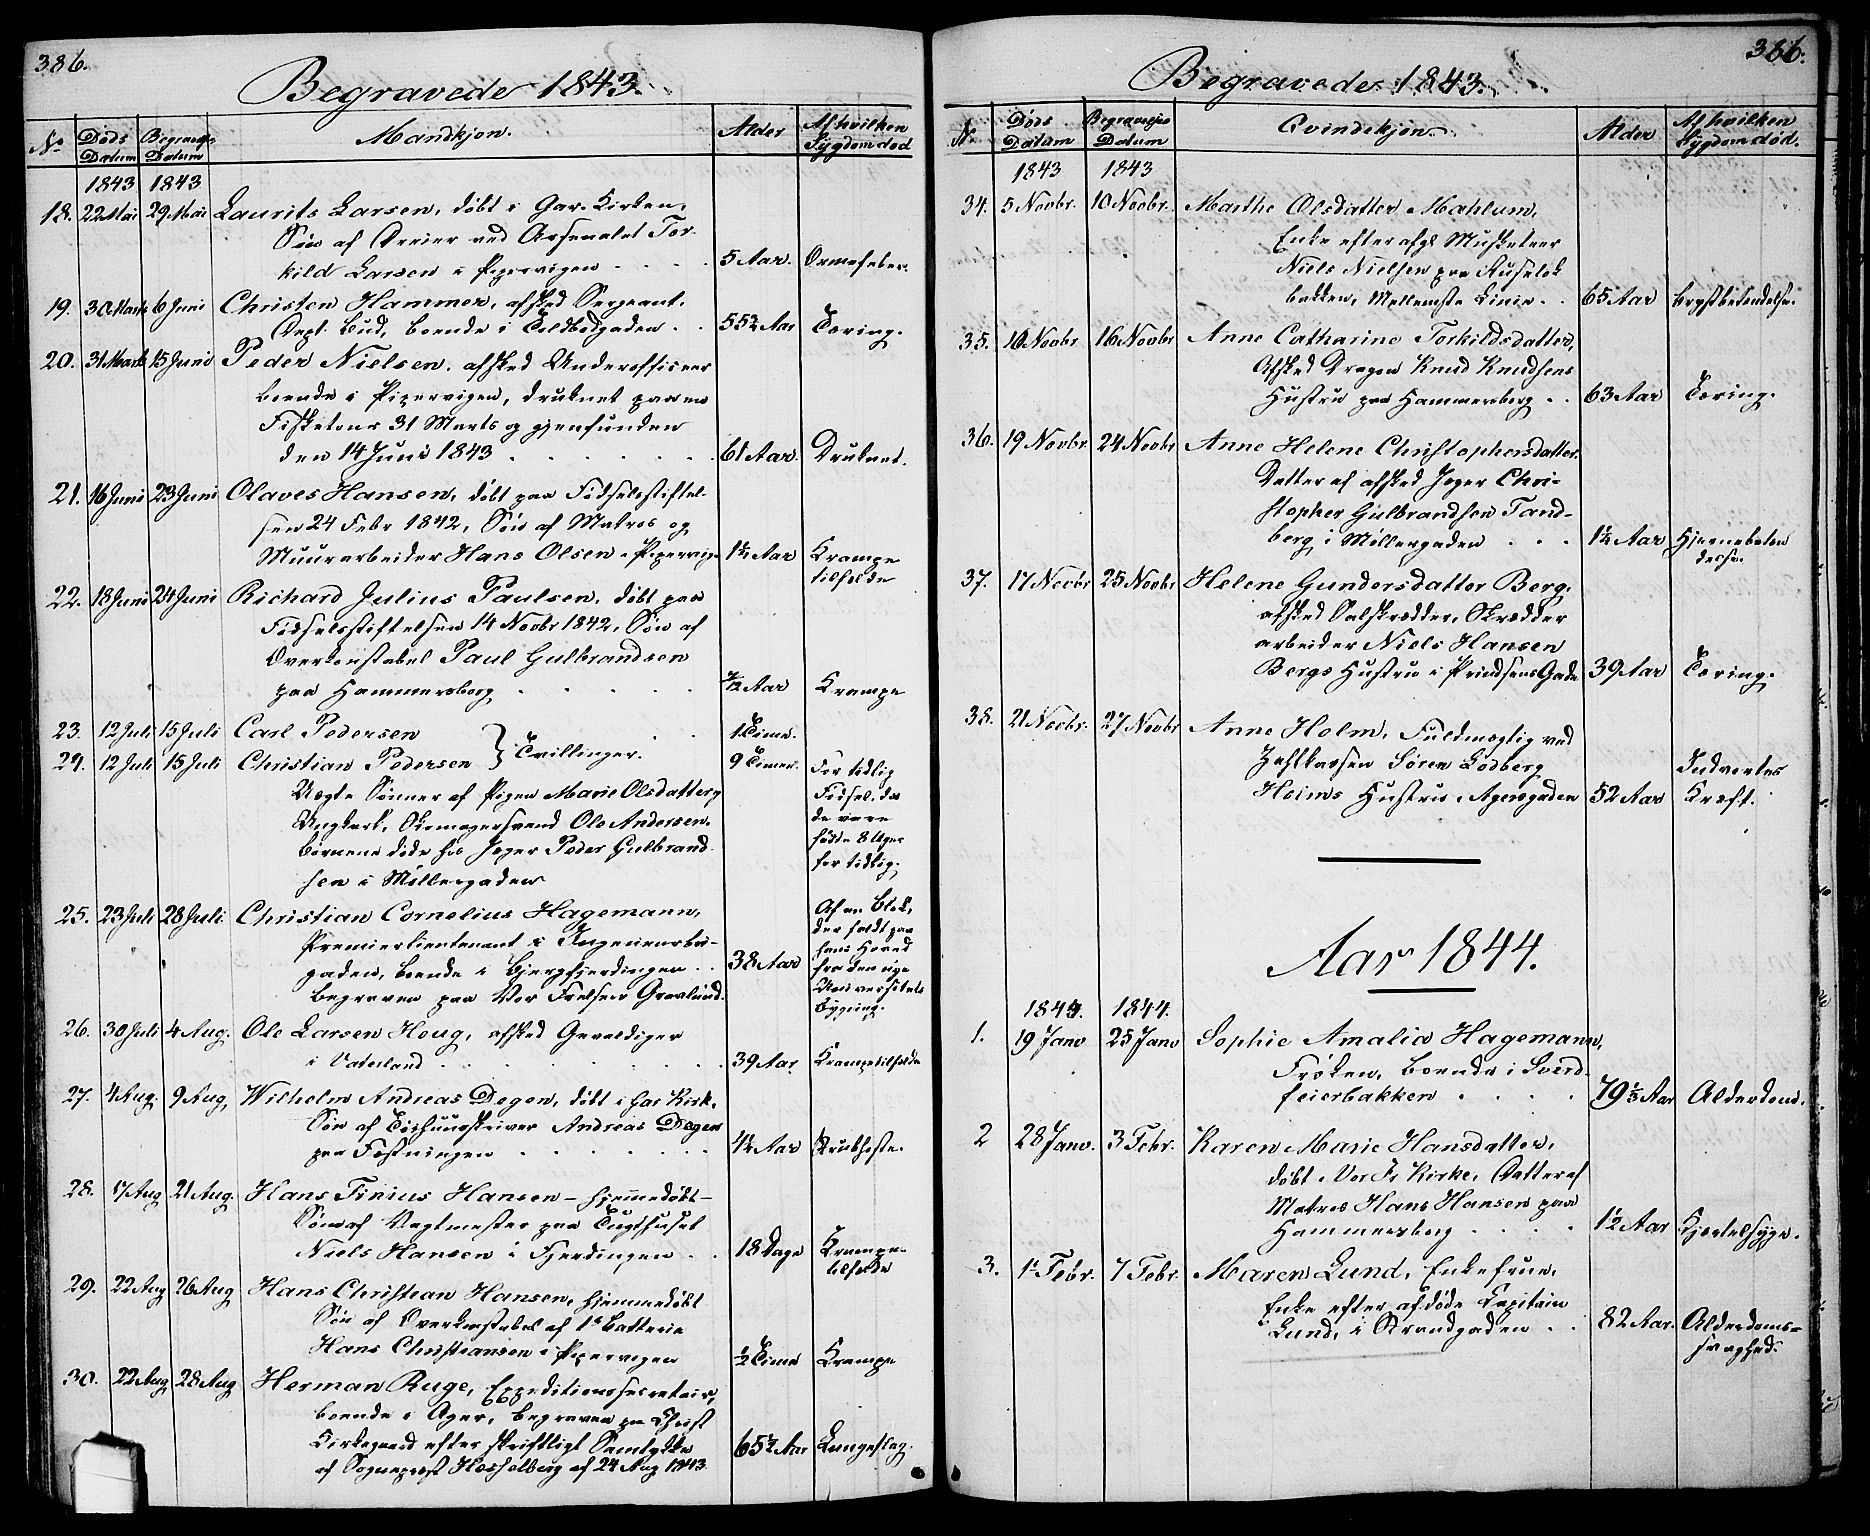 386.
Begravede 1843.
No Døds Datum Begravelses Datum Mandkjøn. Alder Af hvilken Sygdom død
1843 1843
18. 22 Mai 29 Mai Laurits Larsen, døbt i Gar. Kirken,
Søn af Dreier ved Arsenalet Tor-
kild Larsen i Pipervigen . . . . 5 Aar. Ormefeber.
19. 30 Marts 6 Juni Christen Hammer, afsked Sergeant,
Dept. Bud, boende i Toldbodgaden . . 55½ Aar Tæring.
20. 31 Marts 15 Juni Peder Nielsen, afsked Underofficeer
boende i Pipervigen, druknet paa en
Fisketour 31 Marts og gjenfunden
den 14 Juni 1843 . . . . . . 61 Aar. Druknet.
21. 16 Juni 23 Juni Olaves Hansen, døbt paa Fødselsstiftel-
sen 24 Febr 1842, Søn af Matros og
Muurarbeider Hans Olsen i Pipervig. 1½ Aar Krampe
tilfælde
22. 18 Juni 24 Juni Richard Julius Paulsen, døbt paa
Fødselsstiftelsen 14 Novbr 1842, Søn af
Overkonstabel Paul Gulbrandsen
paa Hammersberg . . . . . 7/12 Aar Krampe
23. 12 Juli 15 Juli Carl Pedersen } Tvillinger. . . 1 Time.
24. 12 Juli 15 Juli Christian Pedersen 9 Timer. For tidlig
Uægte Sønner af Pigen Marie Olsdatter og Fødsel, da
Ungkarl, Skomagersvend Ole Andersen. de vare
Børnene døde hos Jæger Peder Gulbrand- fødte 8 Uger
sen i Møllergaden for tidlig.
25. 23 Juli 28 Juli Christian Cornelius Hagemann, Af en Blok,
Premierlieutenant i Ingenieurbri- der faldt paa
gaden, boende i Bjergfjerdingen . . 38 Aar hans Hoved
fra den nye
begraven paa Vor Frelsers Gravlund. Universitets
Bygning.
26. 30 Juli 4 Aug. Ole Larsen Houg, afsked Gevaldiger
i Vaterland . . . . . . . . 39 Aar Krampetilfælde
27. 4 Aug. 9 Aug. Wilhelm Andreas Degen, døbt i Gar Kirk.
Søn af Tøihuusskriver Andreas Degen
paa Fæstningen . . . . . . . 4½ Aar Strubhoste.
28. 17 Aug 21 Aug. Hans Tinius Hansen - hjemmedøbt -
Søn af Vagtmester paa Tugthuset
Niels Hansen i Fjerdingen . . 18 Dage Krampe-
tilfælde
29. 22 Aug 26 Aug Hans Christian Hansen, hjemmedøbt
Søn af Overkonstabel af 1e Batterie
Hans Christiansen i Pipervigen ½ Time Krampe
30. 22 Aug 28 Aug Herman Ruge, Expeditionssecretair,
boende i Ager, begraven paa Christ
Kirkegaard efter skriftligt Samtykke 65½ Aar Lungeslag.
af Sogneprest Hesselberg af 24 Aug 1843.
386.
Begravede 1843.
No. Døds Datum Begravelses Datum Qvindekjøn. Alder Af hvilken Sygdom død.
1843 1843
34. 5 Novbr. 10 Novbr. Marthe Olsdatter Mahlum,
Enke efter afgl Musketeer
Niels Nielsen paa Ruseløk
bakken, Mellemste Linie . . 65 Aar Brystbetændelse.
35. 10 Novbr 16 Novbr Anne Catharine Torkildsdatter,
Afsked Dragon Knud Knudsens
Hustru paa Hammersberg . . 63 Aar Tæring.
36. 19 Novbr. 24 Novbr Anne Helene Christophersdatter.
Datter af afsked Jæger Chri-
stopher Gulbrandsen Tand-
berg i Møllergaden . . . 1½ Aar Hjernebetæn
delse.
37. 17 Novbr 25 Novbr Helene Gundersdatter Berg.
afsked Salskrædder, Skrædder
arbeider Niels Hansen
Bergs Hustru i Prindsens Gade 39 Aar Tæring.
38. 21 Novbr. 27 Novbr Anne Holm, Fuldmægtig ved
Jastkassen Søren Godberg Indvortes
Holms Hustru i Agersgaden 52 Aar Kræft.
Aar 1844.
1844. 1844.
1. 19 Janv 25 Janv Sophie Amalia Hagemann,
Frøken, boende i Sverd-
feierbakken . . . . 79⅓ Aar Alderdom.
2 28 Janv. 3 Febr. Karen Marie Hansdatter,
døbt i Vor Fr Kirke, Datter af
Matros Hans Hansen paa
Hammersberg . . . . 1½ Aar Kjertelsyge.
3. 1e Febr. 7 Febr. Maren Lund, Enkefrue,
Enke efter afdøde Capitain
Lund, i Strandgaden . . 82 Aar. Alderdoms-
svaghed.